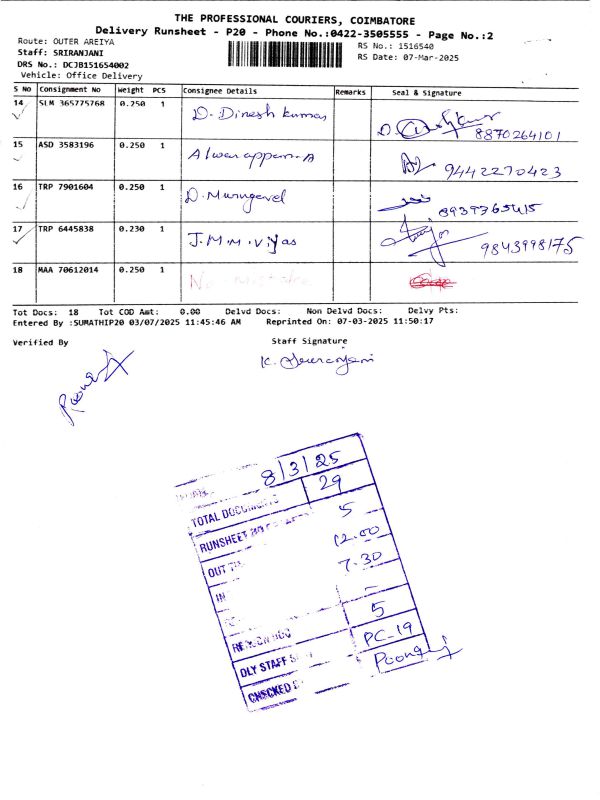 THE PROFESSIONAL COURIERS, COIMBATORE
Delivery Runsheet - P20 - Phone No.:0422-3505555 - Page No.:2
Route: OUTER AREIYA
RS No.: 1516540
Staff: SRIRANJANI
RS Date: 07-Mar-2025
DRS No.: DCJB151654002
Vehicle: Office Delivery
S No Consignment No Weight PCS Consignee Details Remarks Seal & Signature
14 SLM 365775768 0.250 1 D. Dinesh kumar 8870264101
15 ASD 3583196 0.250 1 Alwarappan.A 9442270423
16 TRP 7901604 0.250 1 D. Murugavel 8939765415
17 TRP 6445838 0.230 1 J.M.M.Viyas 9843998175
18 MAA 70612014 0.250 1 No
Tot Docs: 18 Tot COD Amt: 0.00 Delvd Docs: Non Delvd Docs: Delvy Pts:
Entered By :SUMATHIP20 03/07/2025 11:45:46 AM Reprinted On: 07-03-2025 11:50:17
Verified By Staff Signature
8/3/25
TOTAL DOCUMENTS 29
RUNSHEET NO 5
OUT 12.00
IN 7.30
5
DLY STAFF PC-19
CHECKED Poongi